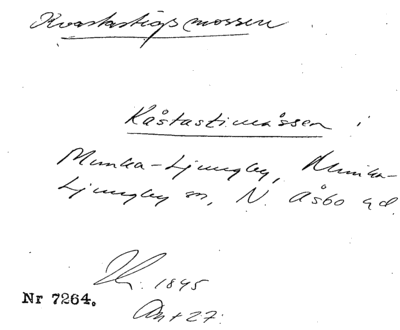 Kvastastigsmossen
Kåstastimåssen i
Munka-Ljungby, Munka-
Ljungby sn, N. Åsbo hd.
1895
Nr 7264.